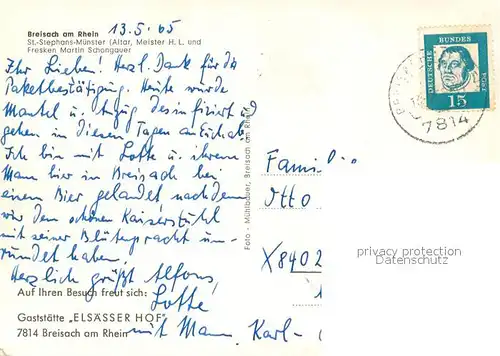 Breisach am Rhein
St.-Stephans-Münster (Altar, Meister H. L. und
Fresken Martin Schongauer
13.5.65
Ihr Lieben! Herzl. Dank für die
Paketbestätigung. Heute wurde
Mantel u. Anzug desinfiziert u
gehen in diesen Tagen an Euch ab.
Ich bin mit Lotte u. ihrem
Mann hier in Breisach bei
einem Bier gelandet nachdem
wir den schönen Kaiserstuhl
mit seiner Blütenpracht um-
rundet haben.
Herzlich grüßt Alfons,
Auf Ihren Besuch freut sich:
Lotte
Gaststätte „ELSÄSSER HOF"
7814 Breisach am Rhein
mit Mann, Karl-
Foto - Mühlbauer, Breisach am Rhein
DEUTSCHE BUNDESPOST
15
7814
Famil
Otto
X8402
privacy protection
Datenschutz